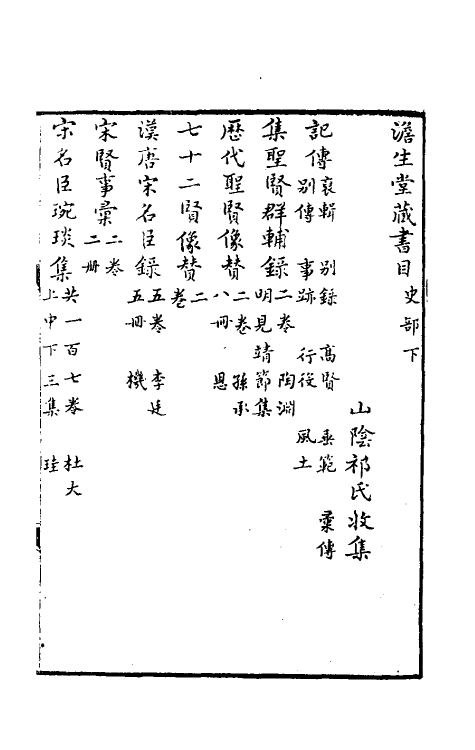 澹生堂藏書目 史部下
山陰祁氏收集
記傳 裒輯 別錄 高賢 垂範 彙傳
別傳 事跡 行役 風土
集聖賢群輔錄 二卷 陶淵
明見靖節集
歷代聖賢像贊 二卷 孫承
八冊 恩
七十二賢像贊 二
卷
漢唐宋名臣錄 五卷 李廷
五冊 機
宋賢事彙 二卷
二冊
宋名臣琬琰集 共一百七卷 杜大
上中下三集 珪